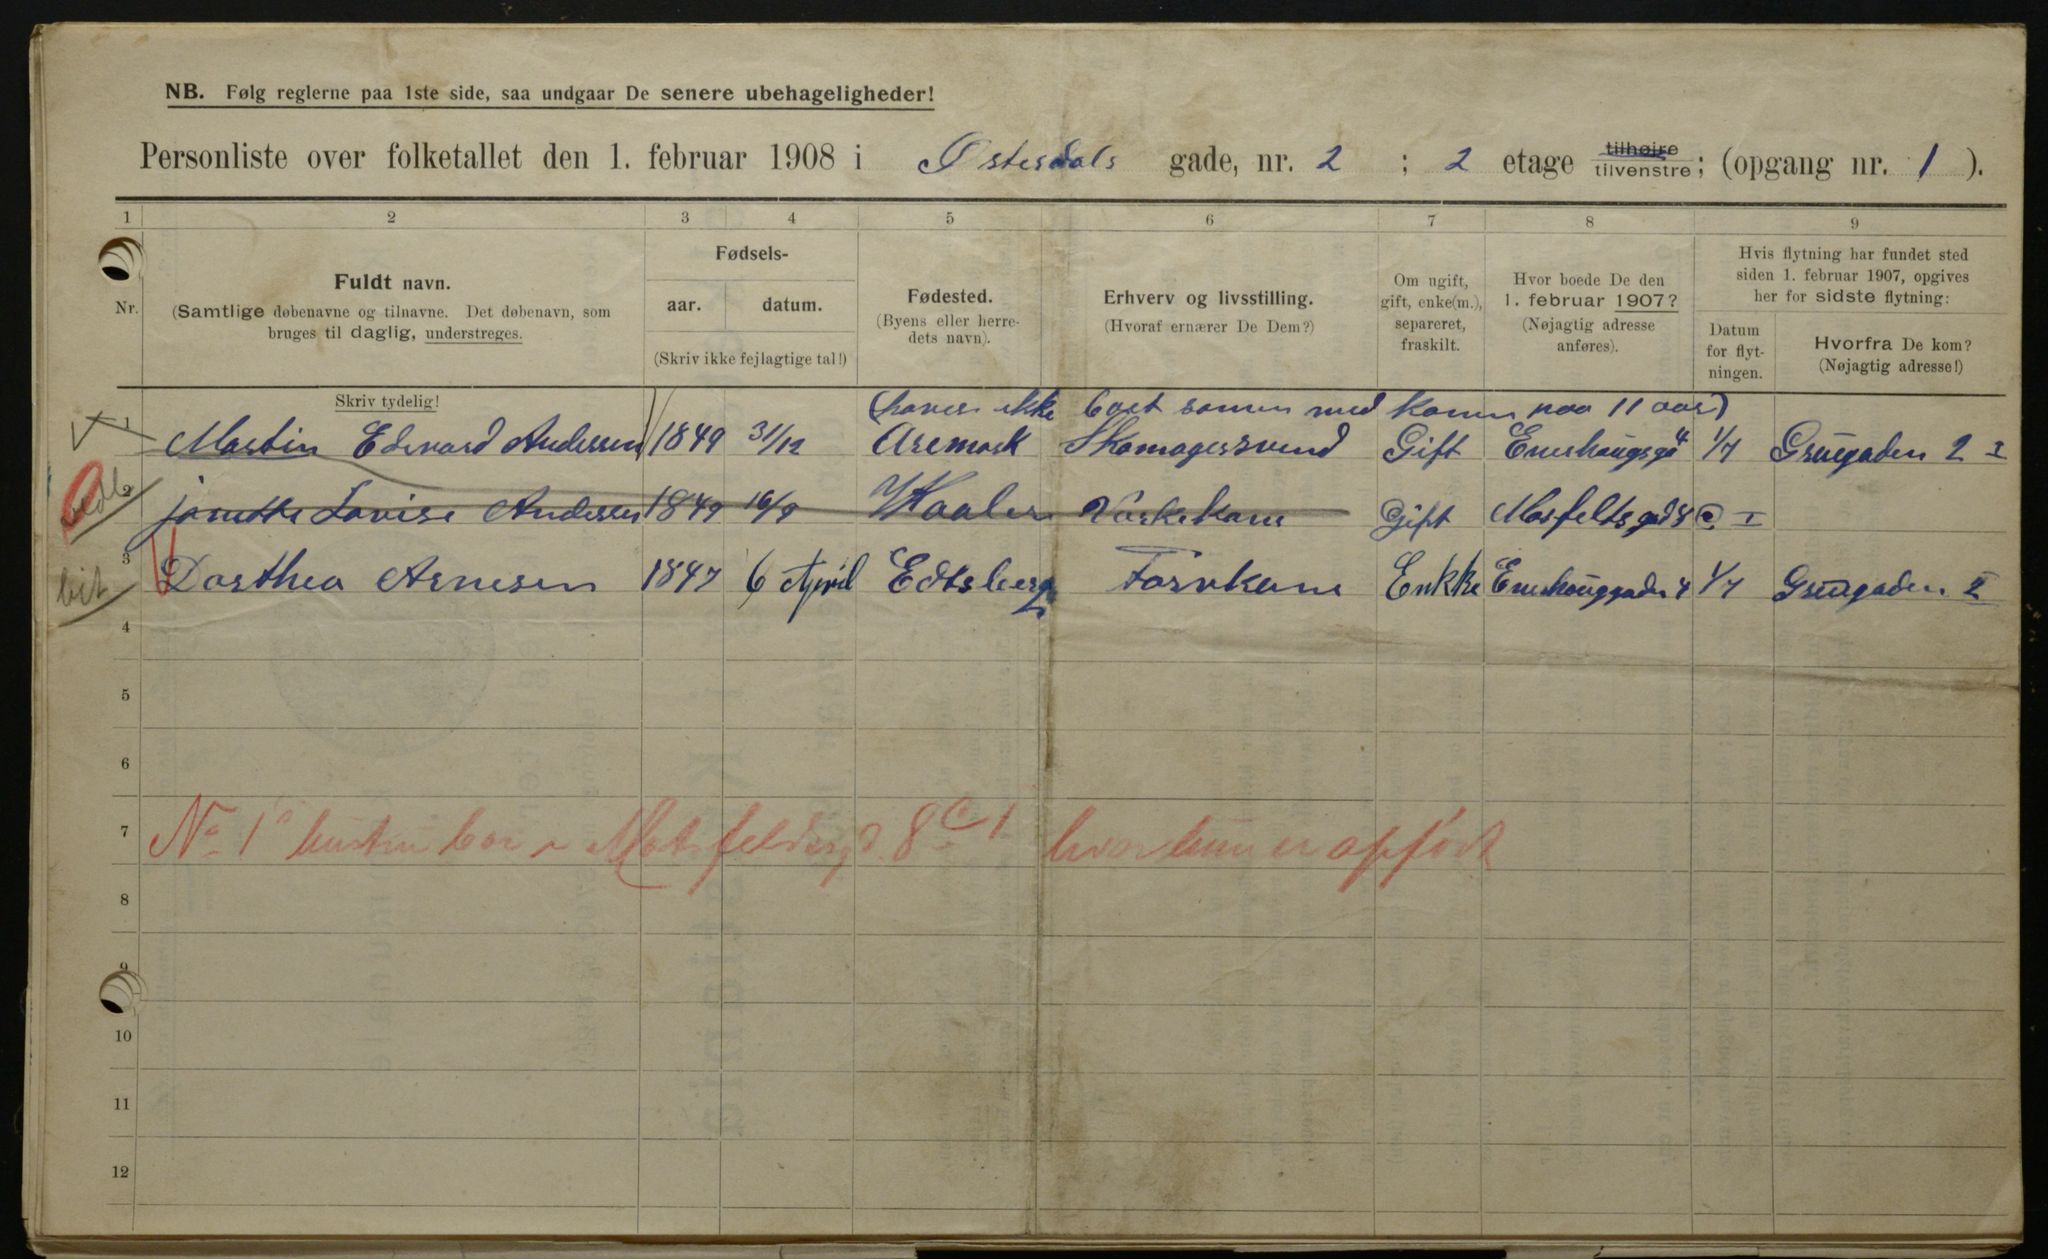 NB. Følg reglerne paa 1ste side, saa undgaar De senere ubehageligheder!
Personliste over folketallet den 1. februar 1908 i Østerdals gade, nr. 2 ; 2 etage tilhøire tilvenstre; (opgang nr. 1 ).
1 2 3 4 5 6 7 8 9
Nr.
Fuldt navn.
(Samtlige døbenavne og tilnavne. Det døbenavn, som
bruges til daglig, understreges.
Skriv tydelig!
Fødsels-
aar. datum.
(Skriv ikke fejlagtige tal!)
Fødested.
(Byens eller herre-
dets navn).
Erhverv og livsstilling.
(Hvoraf ernærer De Dem?)
Om ugift,
gift, enke(m.),
separeret,
fraskilt.
Hvor boede De den
1. februar 1907?
(Nøjagtig adresse
anføres).
Hvis flytning har fundet sted
siden 1. februar 1907, opgives
her for sidste flytning:
Datum
for flyt-
ningen.
Hvorfra De kom?
(Nøjagtig adresse!)
(haver ikke boet samen med konen paa 11 aar)
1 Martin Edevard Andersen 1849 31/12 Aremark Skomagersvend Gift Enerhaugsga 4 1/7 Gruegaden 2 I
2 Janette Lovise Andersen 1849 16/9 Vaaler Vaskekone Gift Mosfeltsgad 8 C. I
3 Dorthea Arnesen 1847 6 April Edtsberg Forvkone Enkke Enerhauggaden 4 1/7 Gruegaden 2
4
5
6
7 No 1s hustru bor i Motzfeldtsgd. 8 C 1 hvor hun er opført
8
9
10
11
12